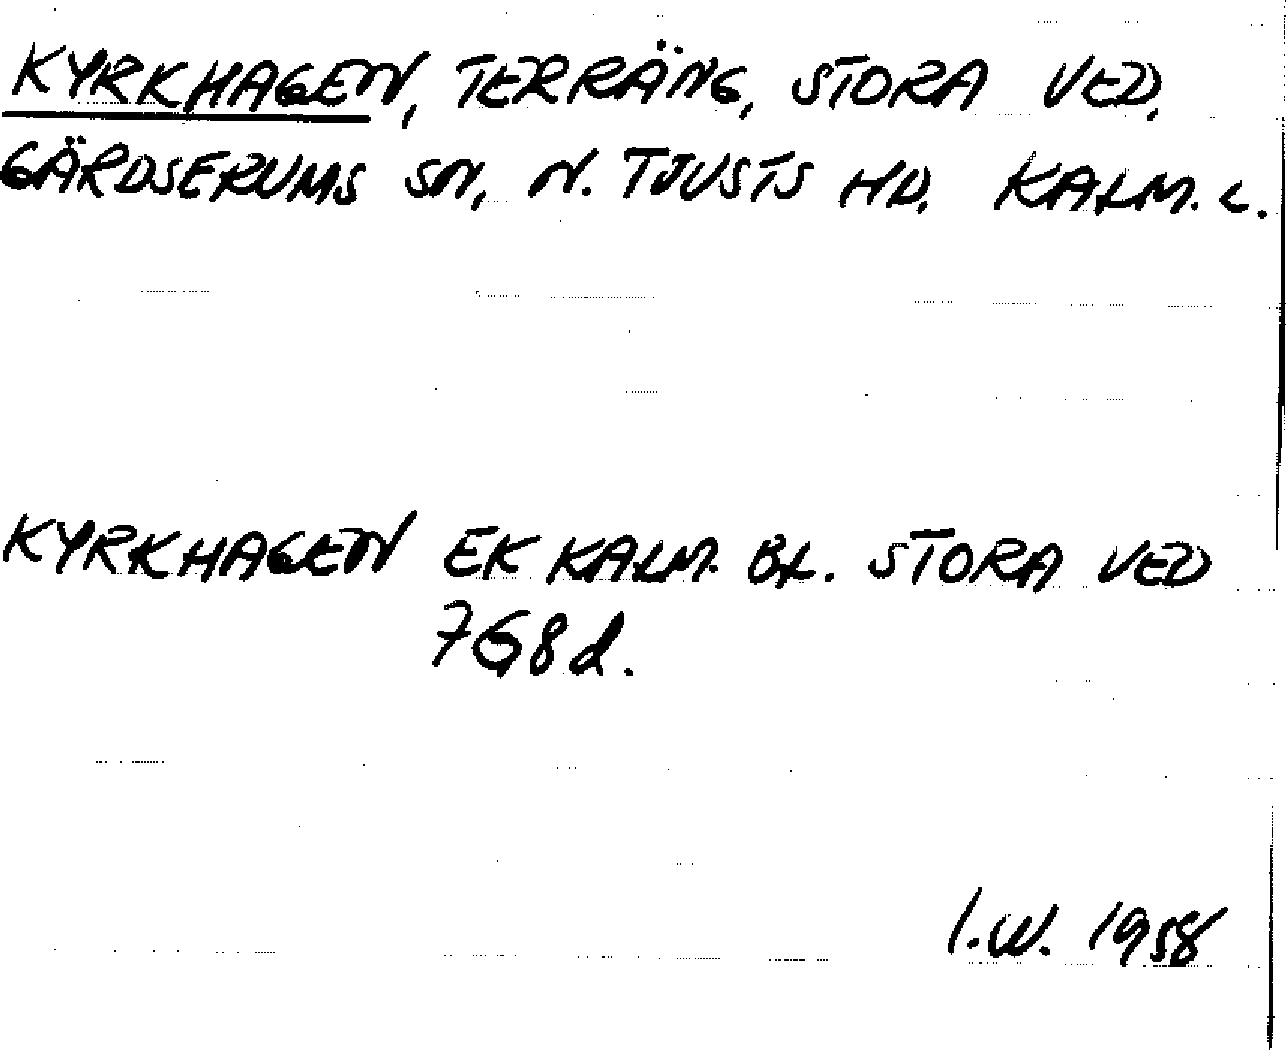 KYRKHAGEN, TERRÄNG, STORA VED,
GÄRDSERUMS SN, N. TJUSTS HD, KALM. L.
KYRKHAGEN EK KALM. BL. STORA VED
7G8d.
I.W. 1958